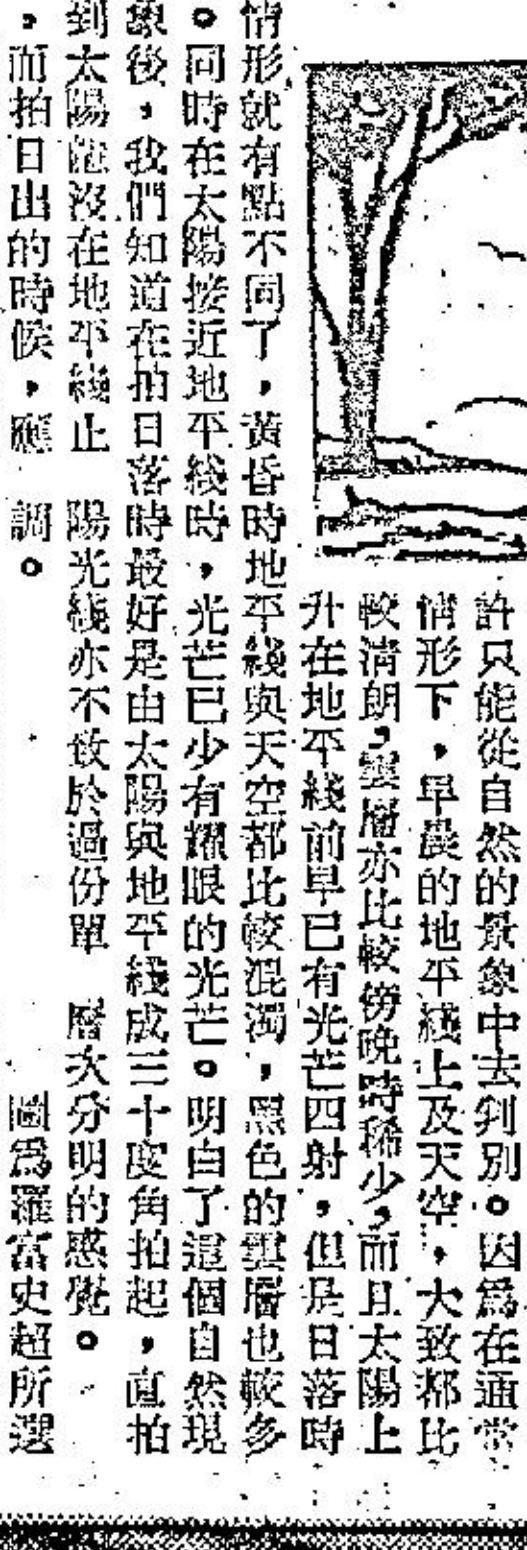 許只能從自然的景象中去判別。因爲在通常
情形下，早晨的地平綫上及天空，大致都比
較淸朗，雲層亦比較傍晚時稀少，而且太陽上
升在地平綫前早已有光芒四射，但是日落時
情形就有點不同了，黃昏時地平綫與天空都比較混濁，黑色的雲層也較多
。同時在太陽接近地平綫時，光芒已少有耀眼的光芒。明白了這個自然現
象後，我們知道在拍日落時最好是由太陽與地平綫成三十度角拍起，直拍
到太陽 沒在地平綫止
陽光綫亦不致於過份單
層次分明的感覺。
，而拍日出的時候，應
調。
圖爲羅富史超所選